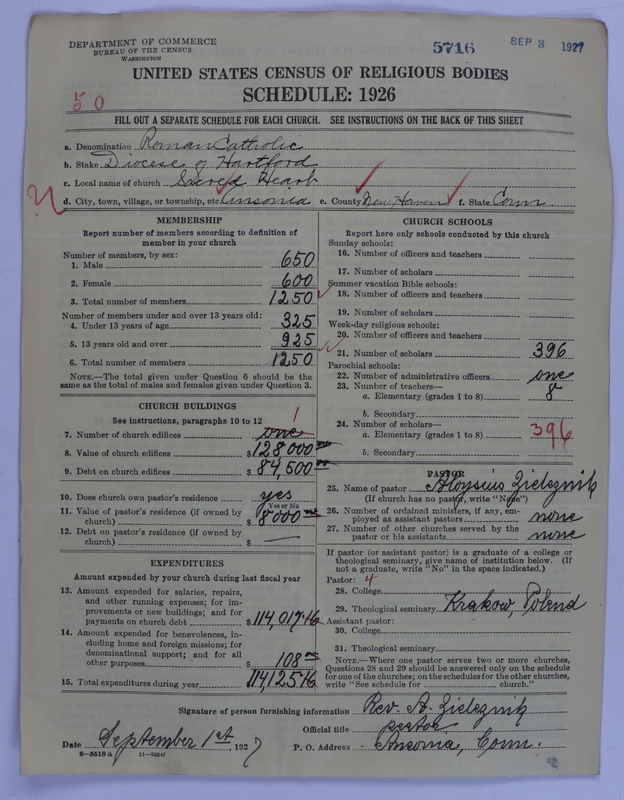 DEPARTMENT OF COMMERCE
BUREAU OF THE CENSUS
WASHINGTON
5716
SEP 3 1927
UNITED STATES CENSUS OF RELIGIOUS BODIES
SCHEDULE: 1926
50
FILL OUT A SEPARATE SCHEDULE FOR EACH CHURCH. SEE INSTRUCTIONS ON THE BACK OF THIS SHEET
a. Denomination Roman Catholic
b. Stake Diocese of Hartford
c. Local name of church Sacred Heart
d. City, town, village, or township, etc. Ansonia e. County New Haven f. State Conn
MEMBERSHIP
Report number of members according to definition of
member in your church
Number of members, by sex:
1. Male 650
2. Female 600
3. Total number of members 1250
Number of members under and over 13 years old:
4. Under 13 years of age 325
5. 13 years old and over 925
6. Total number of members 1250
NOTE.—The total given under Question 6 should be the
same as the total of males and females given under Question 3.
CHURCH BUILDINGS
See instructions, paragraphs 10 to 12
7. Number of church edifices one 1
8. Value of church edifices $128000
9. Debt on church edifices $84,500
10. Does church own pastor's residence yes
Yes or No
11. Value of pastor's residence (if owned by
church) $8000
12. Debt on pastor's residence (if owned by
church) $ —
EXPENDITURES
Amount expended by your church during last fiscal year
13. Amount expended for salaries, repairs,
and other running expenses; for im-
provements or new buildings; and for
payments on church debt $114,017.16
14. Amount expended for benevolences, in-
cluding home and foreign missions; for
denominational support; and for all
other purposes $108
15. Total expenditures during year 114,125.16
CHURCH SCHOOLS
Report here only schools conducted by this church
Sunday schools:
16. Number of officers and teachers
17. Number of scholars
Summer vacation Bible schools:
18. Number of officers and teachers
19. Number of scholars
Week-day religious schools:
20. Number of officers and teachers
21. Number of scholars 396
Parochial schools:
22. Number of administrative officers one
23. Number of teachers—
a. Elementary (grades 1 to 8) 8
b. Secondary
24. Number of scholars—
a. Elementary (grades 1 to 8) 396
b. Secondary
PASTOR
25. Name of pastor Aloysius Zieleznik
(If church has no pastor, write "None")
26. Number of ordained ministers, if any, em-
ployed as assistant pastors none
27. Number of other churches served by the
pastor or his assistants none
If pastor (or assistant pastor) is a graduate of a college or
theological seminary, give name of institution below. (If
not a graduate, write "No" in the space indicated.)
Pastor: 4
28. College
29. Theological seminary Krakow, Polend
Assistant pastor:
30. College
31. Theological seminary
NOTE.—Where one pastor serves two or more churches,
Questions 28 and 29 should be answered only on the schedule
for one of the churches; on the schedules for the other churches,
write "See schedule for church."
Signature of person furnishing information Rev. A. Zieleznik
Official title pastor
Date September 1st, 1927 P. O. Address Ansonia, Conn.
8—5518a